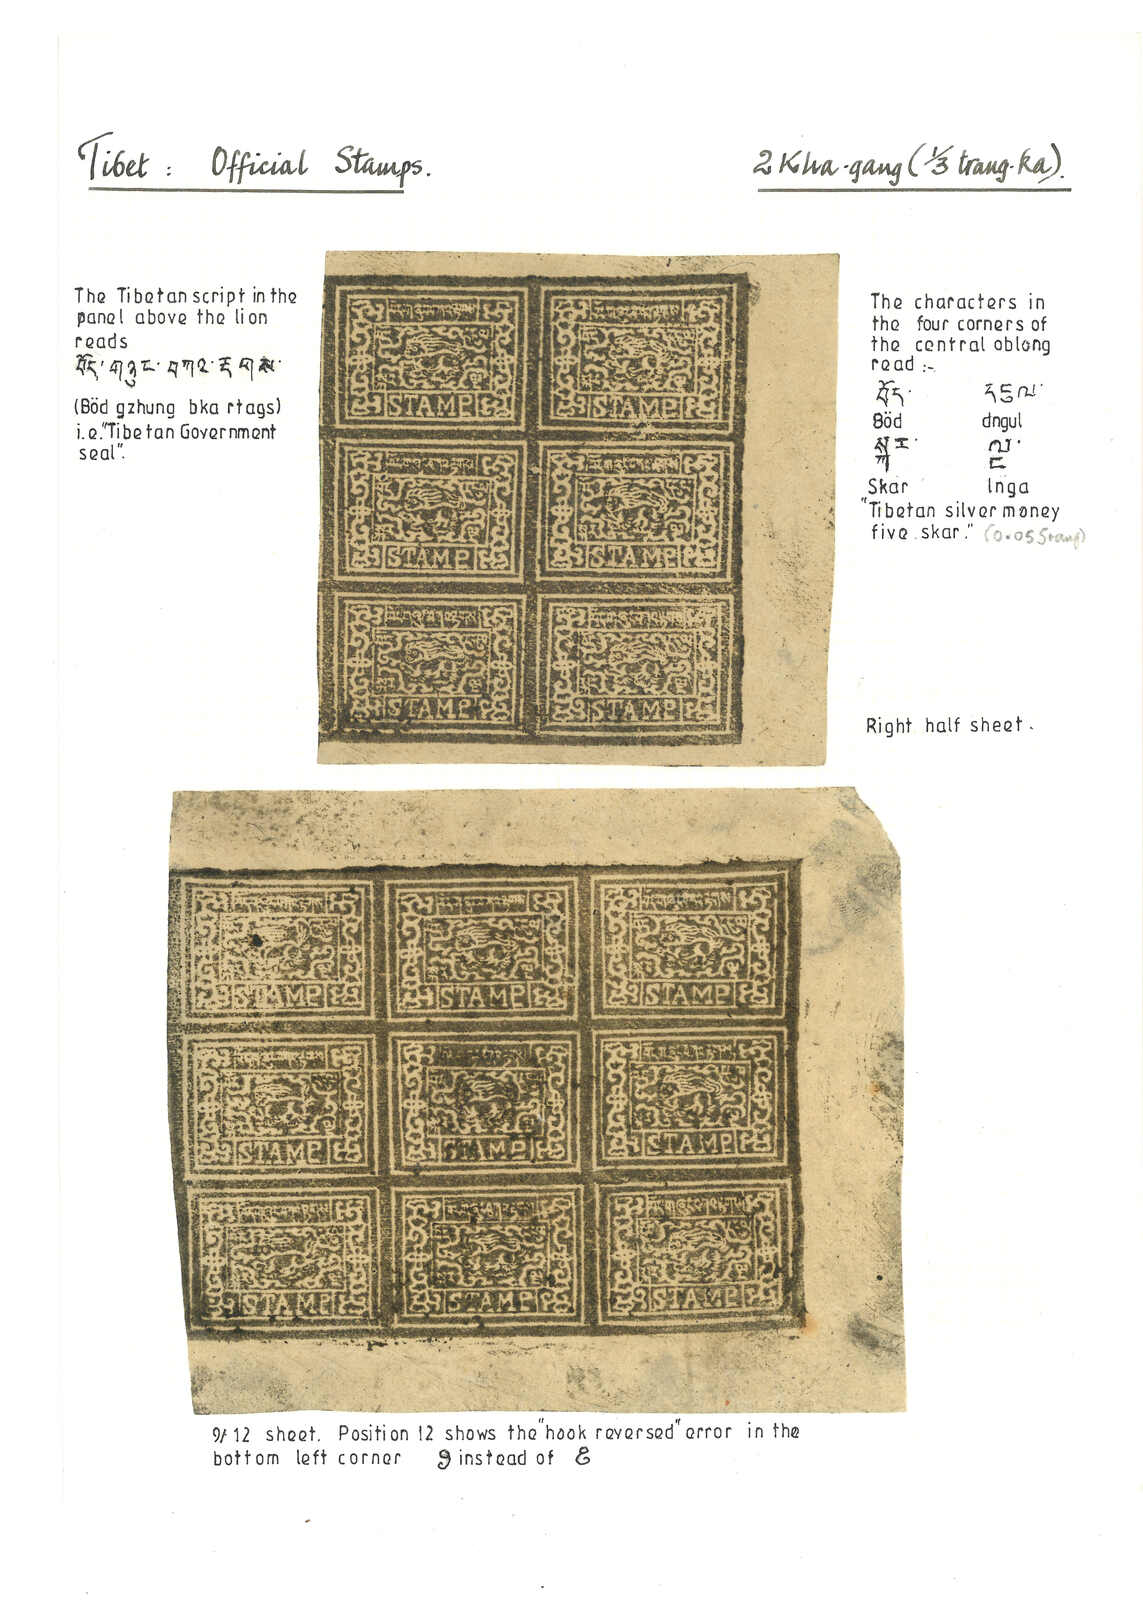 Tibet : Official Stamps.
2 Kha-gang (1/3 trang-ka).
The Tibetan script in the
panel above the lion
reads
བོད་གཞུང་བཀའ་རྟགས་
(Böd gzhung bka rtags)
i.e."Tibetan Government
seal".
The characters in
the four corners of
the central oblong
read :-
བོད་ དངུལ་
Böd dngul
སྐར་ ལྔ་
Skar lnga
"Tibetan silver money
five skar." (0.05 Srang)
STAMP STAMP
STAMP STAMP
STAMP STAMP
Right half sheet.
STAMP STAMP STAMP
STAMP STAMP STAMP
STAMP STAMP STAMP
9/12 sheet. Position 12 shows the "hook reversed" error in the
bottom left corner instead of